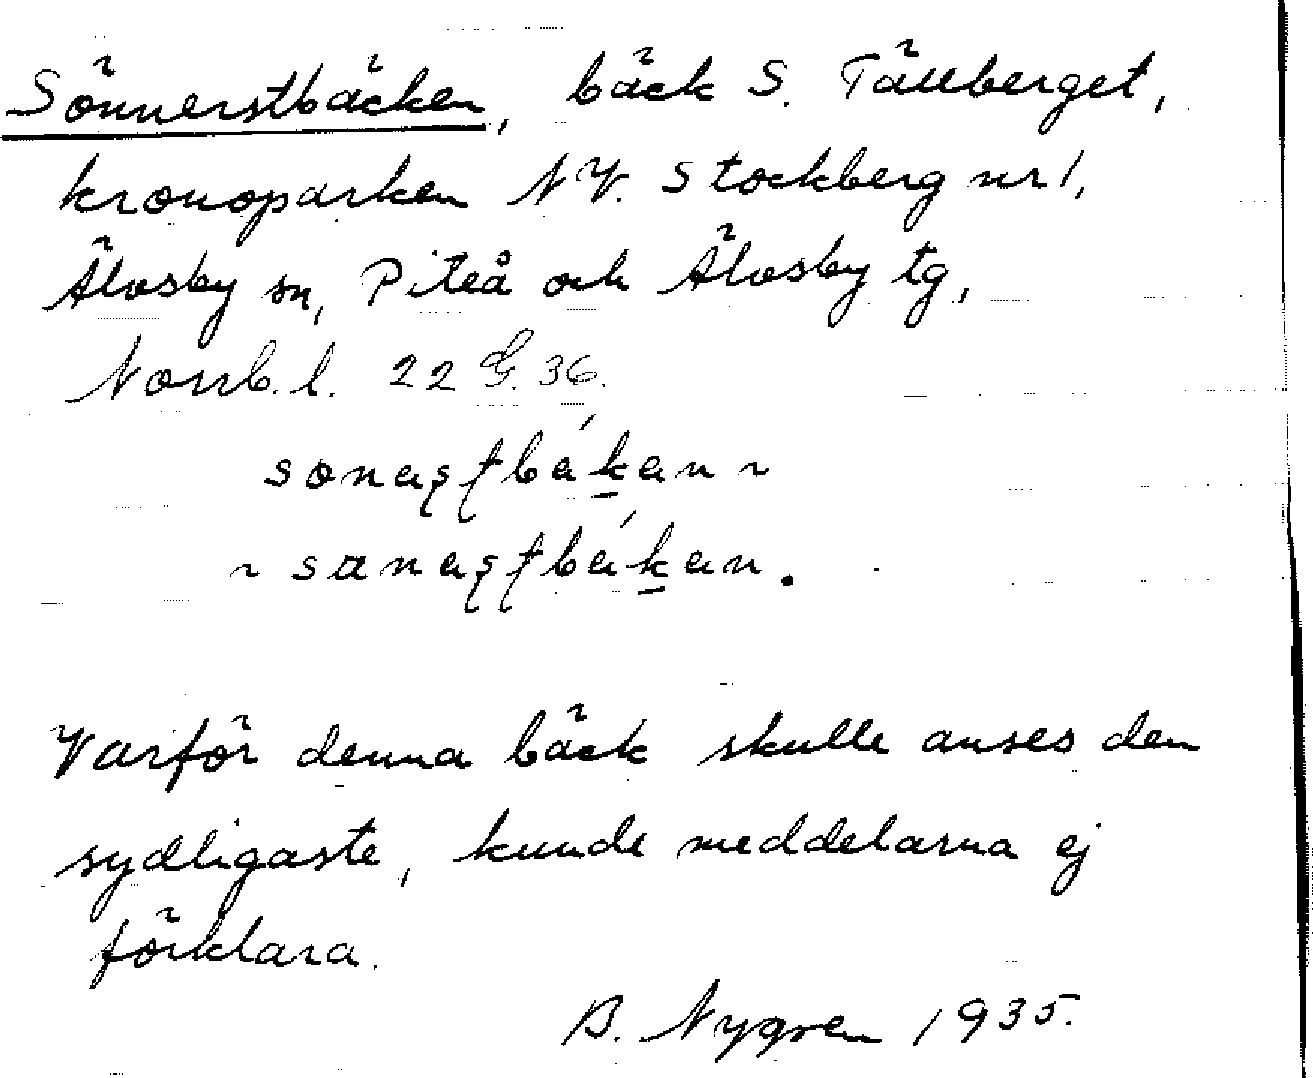 Sönnerstbäcken, bäck S. Tällberget,
kronoparken NV. Stockberg nr 1,
Älvsby sn, Piteå och Älvsby tg,
Norrb. l. 22 G. 36.
Varför denna bäck skulle anses den
sydligaste, kunde meddelarna ej
förklara.
B. Nygren 1935.